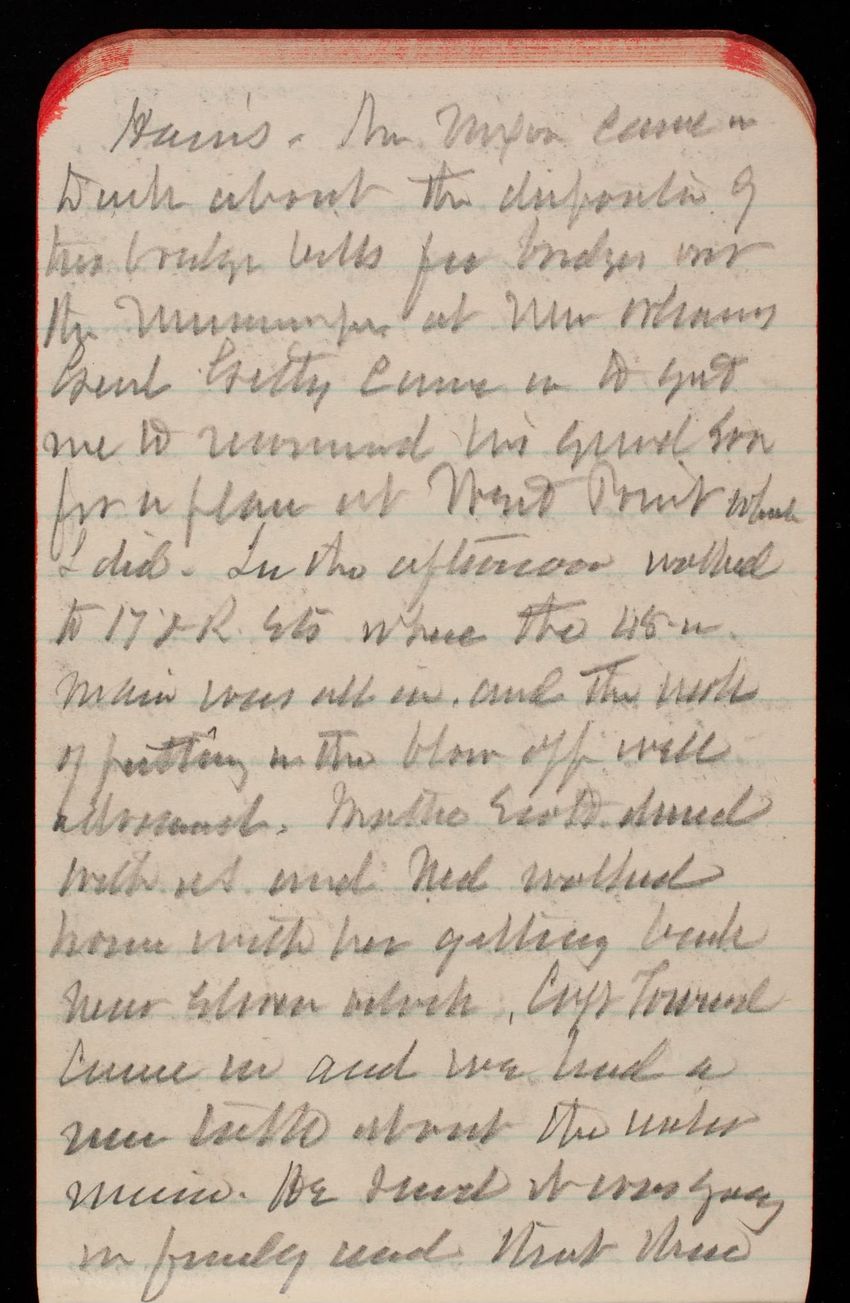 Harris. Mr Nixon came in
to ask about the disposition of
two bridge bills for bridges over
the Mississippi at New Orleans
Genl Getty came in to get
me to recommend his grand son
for a place at West Point which
I did. In the afternoon walked
to 17 & R Sts where the 48 in
main was all in. and the work
of putting in the blow off well
advanced. Miss Scott dined
with us and Ned walked
home with her getting back
near eleven oclock. Capt Townsend
came in and we had a
nice talk about the water
main. He said it was going
in finely and that there